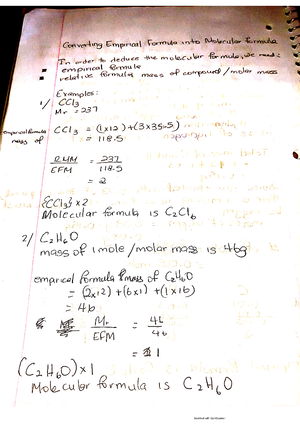 Converting Empirical Formula into Molecular formula
In order to deduce the molecular formula, we need:
▪ empirical formula
▪ relative formula mass of compound / molar mass
Examples:
1/ CCl3
Mr = 237
empirical formula mass of CCl3 = (1x12) + (3x35.5)
= 118.5
RMM/EFM = 237/118.5
= 2
{CCl3} x 2
Molecular formula is C2Cl6
2/ C2H6O
mass of 1 mole / molar mass is 46g
emparical formula mass of C2H6O
= (2x12) + (6x1) + (1x16)
= 46
Mr/EFM = 46/46
= 1
(C2H6O) x 1
Molecular formula is C2H6O